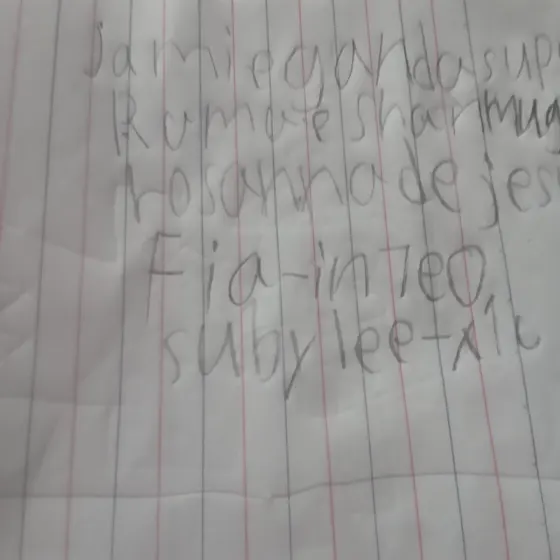 jamiegandasup
Rumaeshanmug
rosannadejes
Fia-in7eo
subylee-